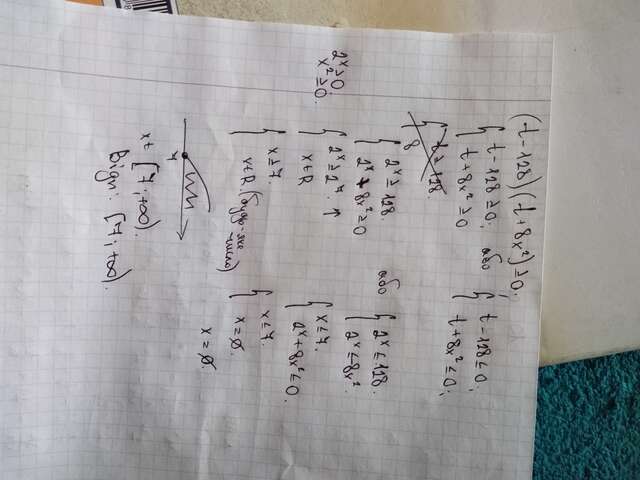 (t-128)(t+8x²)≥0.
{ t-128≥0; t+8x²≥0 або { t-128≤0; t+8x²≤0;
{ t≥128.
{ 2ˣ≥128. 2ˣ+8x²≥0 або { 2ˣ≤128. 2ˣ≤-8x².
2ˣ≥0. x²≥0.
{ 2ˣ≥2⁷. ↑ x∈R { x≤7. 2ˣ+8x²≤0.
{ x≥7. x∈R. (будь-яке число) { x≤7. x=∅.
x=∅.
7
x∈[7;+∞).
Відп: [7;+∞).